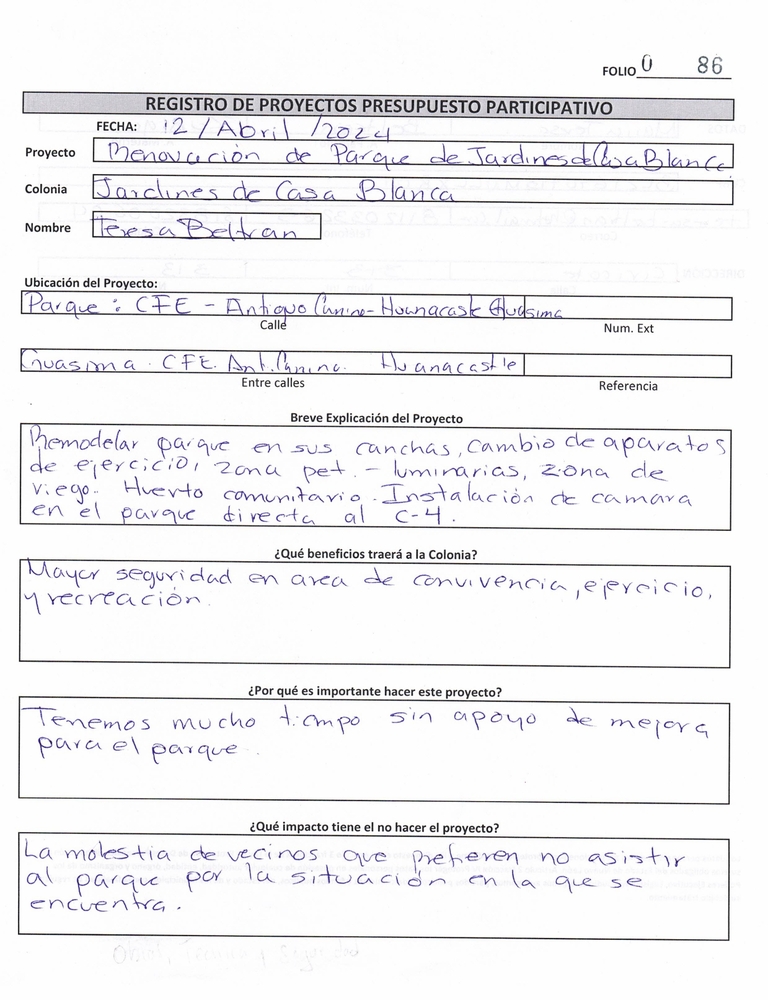 FOLIO 0 86
REGISTRO DE PROYECTOS PRESUPUESTO PARTICIPATIVO
FECHA: 12/Abril/2024
Proyecto Renovación de Parque de Jardines de Casa Blanca
Colonia Jardines de Casa Blanca
Nombre Teresa Beltran
Ubicación del Proyecto:
Parque: CFE - Antiguo Camino - Huanacaste Guasima
Calle Num. Ext
Guasima. CFE. Ant. Camino. Huanacastle
Entre calles Referencia
Breve Explicación del Proyecto
Remodelar parque en sus canchas, cambio de aparatos
de ejercicio, zona pet. - luminarias, zona de
riego. Huerto comunitario. Instalación de camara
en el parque directa al C-4.
¿Qué beneficios traerá a la Colonia?
Mayor seguridad en area de convivencia, ejercicio,
y recreación.
¿Por qué es importante hacer este proyecto?
Tenemos mucho tiempo sin apoyo de mejora
para el parque.
¿Qué impacto tiene el no hacer el proyecto?
La molestia de vecinos que prefieren no asistir
al parque por la situación en la que se
encuentra.